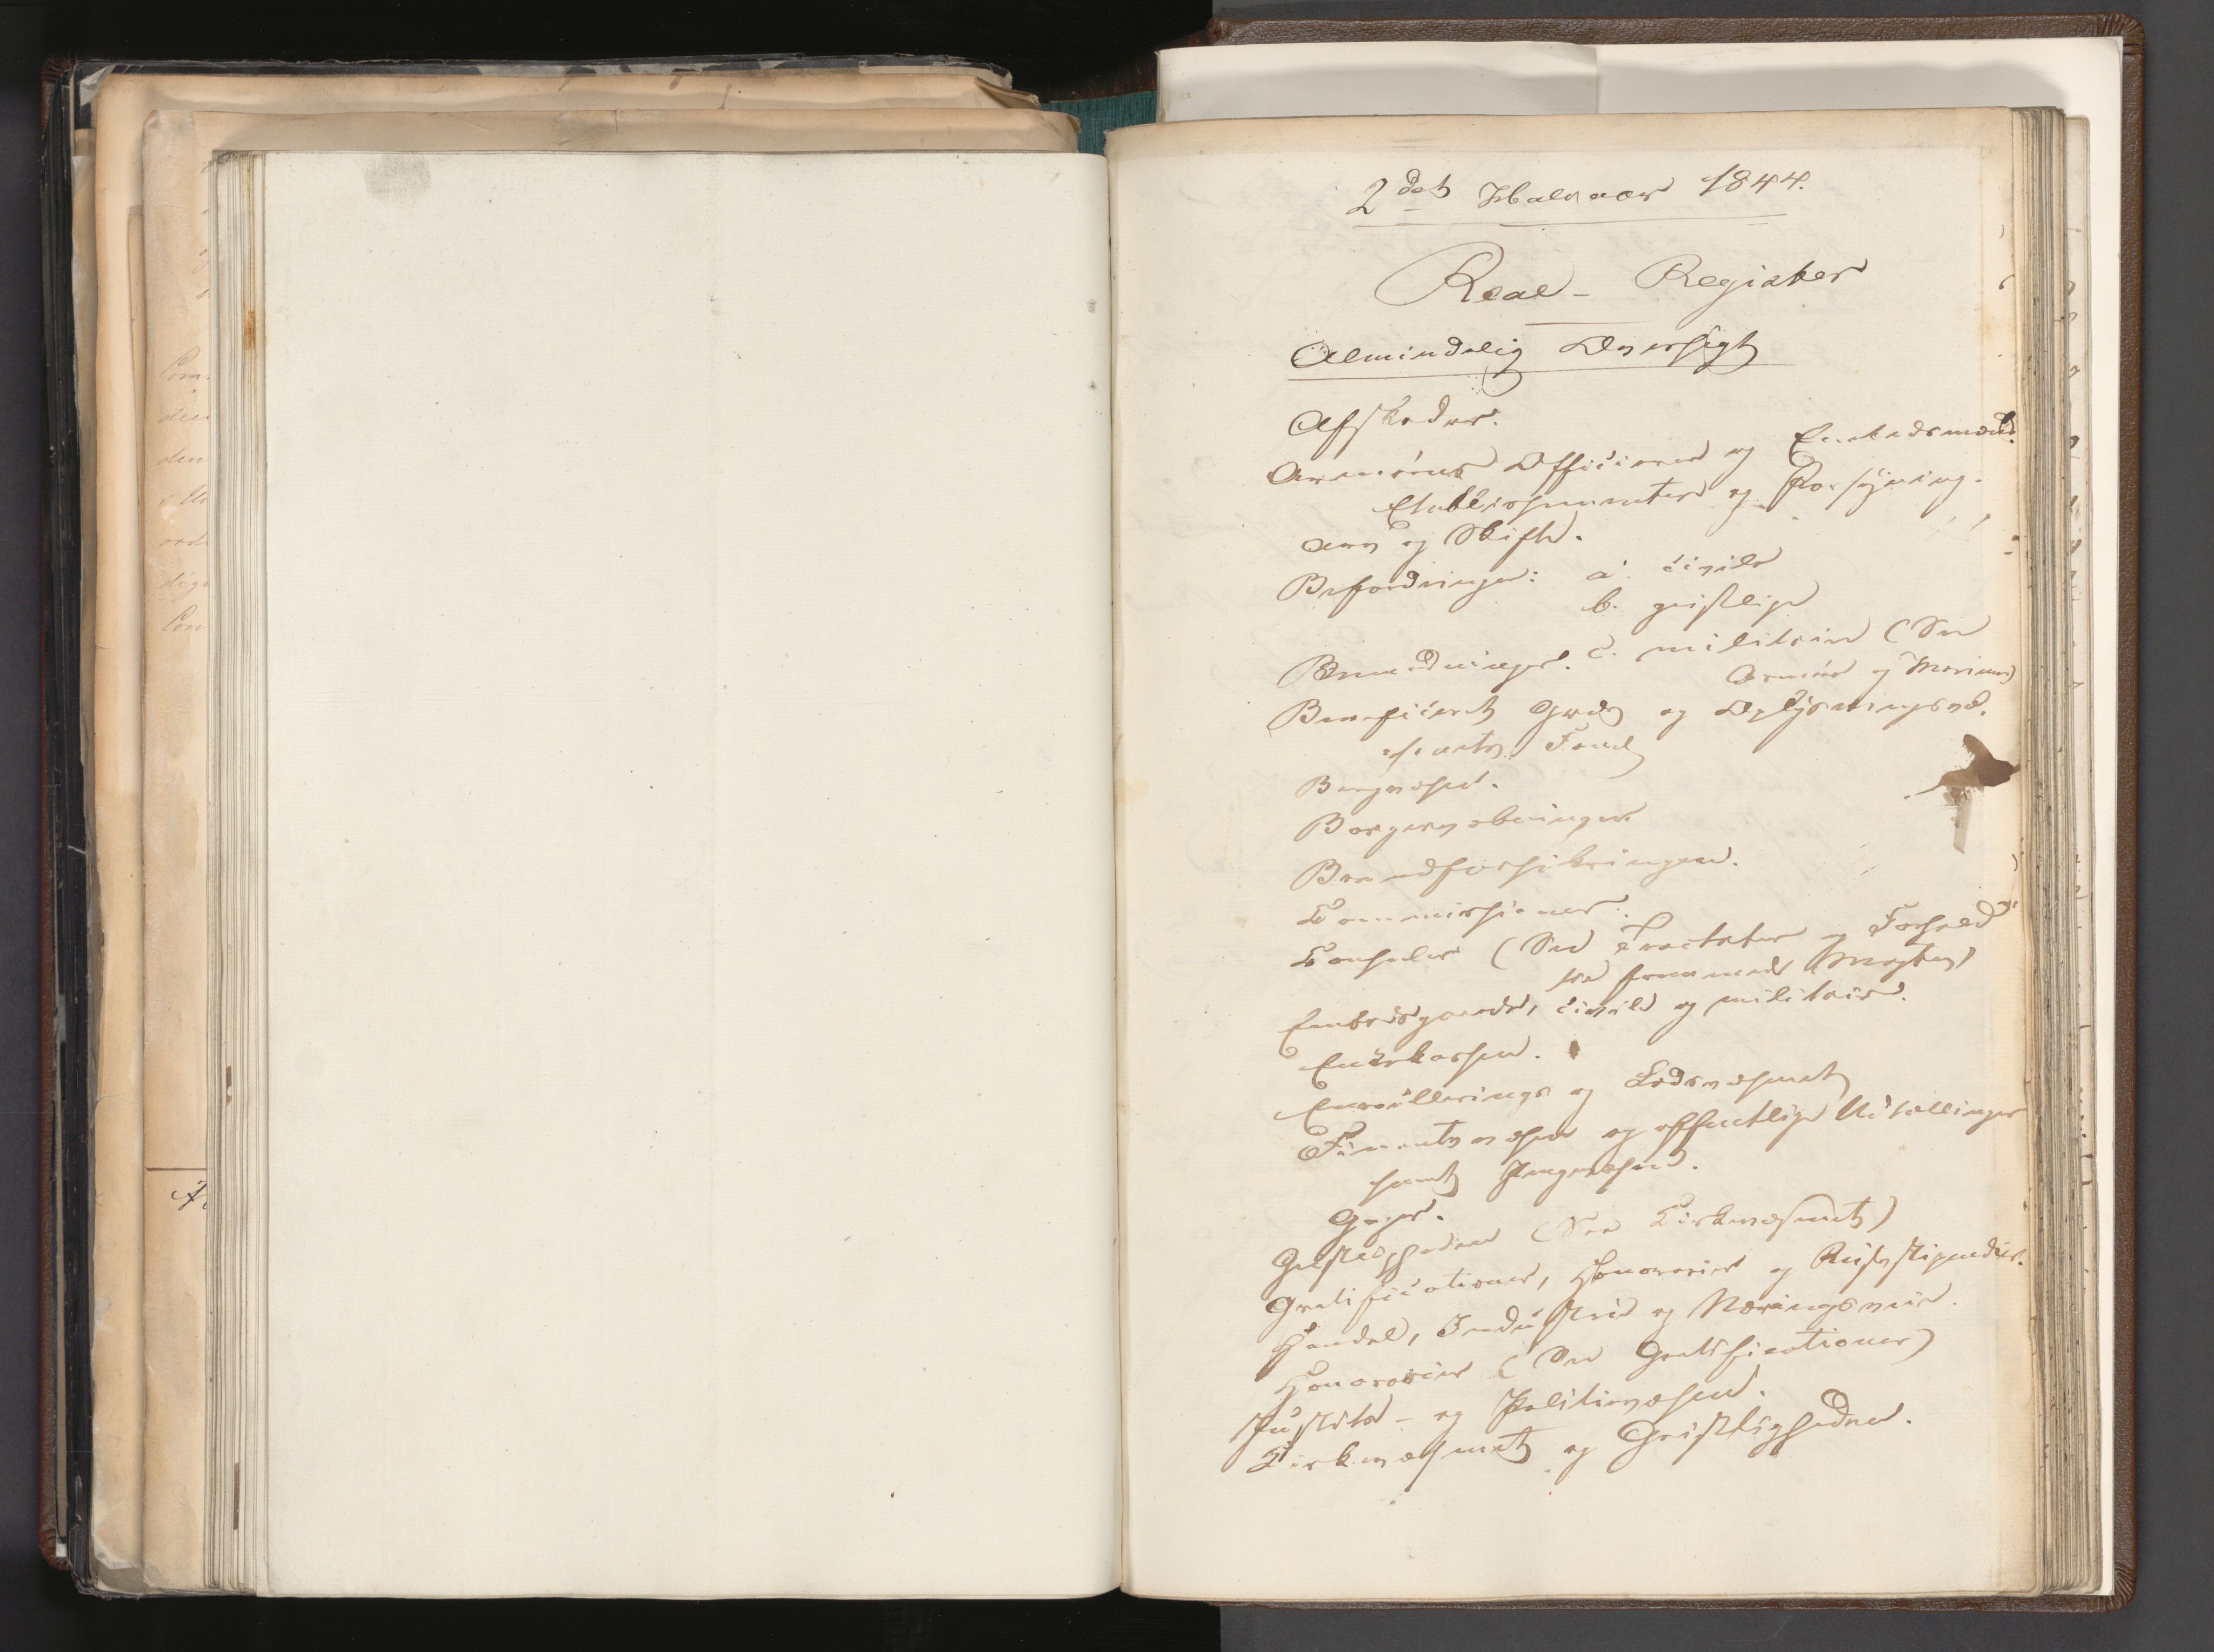 2det Halvaar 1844.
Real-Register
Almindelig Oversigt
Afskeder.
Armeens Officierer og Embedsmænd.
Etablissementer og Forsyning.
Arv og Skifte.
Befordringer: a. civile
b. geistlige
c. militaire (See
Armeen og Marinen)
Benaadninger.
Beneficeret Gods og Oplysningsvæ-
senets Fond
Bergvæsen.
Borgervæbninger
Brandforsikringen.
Commissioner.
Consuler (See Tractater og Forhold
til fremmede Magter)
Embedsgaarde, civile og militaire.
Enkekassen.
Enroullerings og Lodsvæsenet
Finantsvæsen og offentlige Udtællinger
samt Pengevæsen.
Gager.
Geistligheden (See Kirkevæsenet)
Gratificationer, Honorarier og Reisestipendier.
Handel, Industrie og Næringsveie.
Honorarier (See Gratificationer)
Justits- og Politievæsen.
Kirkevæsenet og Geistligheden.
Com
den
den
ord
dige
Com